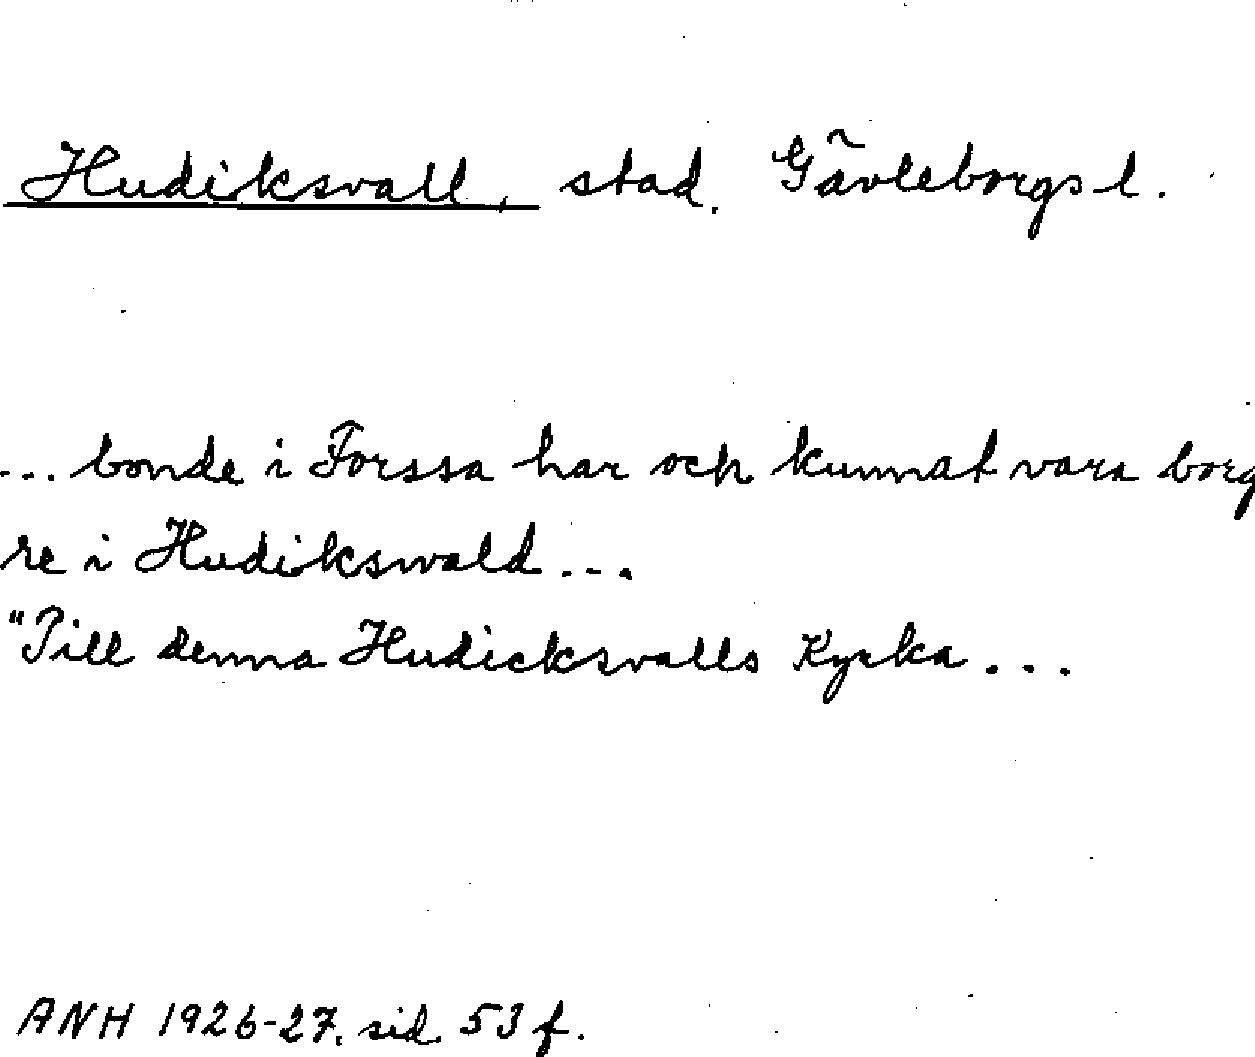 Hudiksvall, stad. Gävleborgs l.
... bonde i Forssa har och kunnat vara borg
re i Hudikswald ...
"Till denna Hudicksvalls Kyrka ...
ANH 1926-27, sid. 53 f.